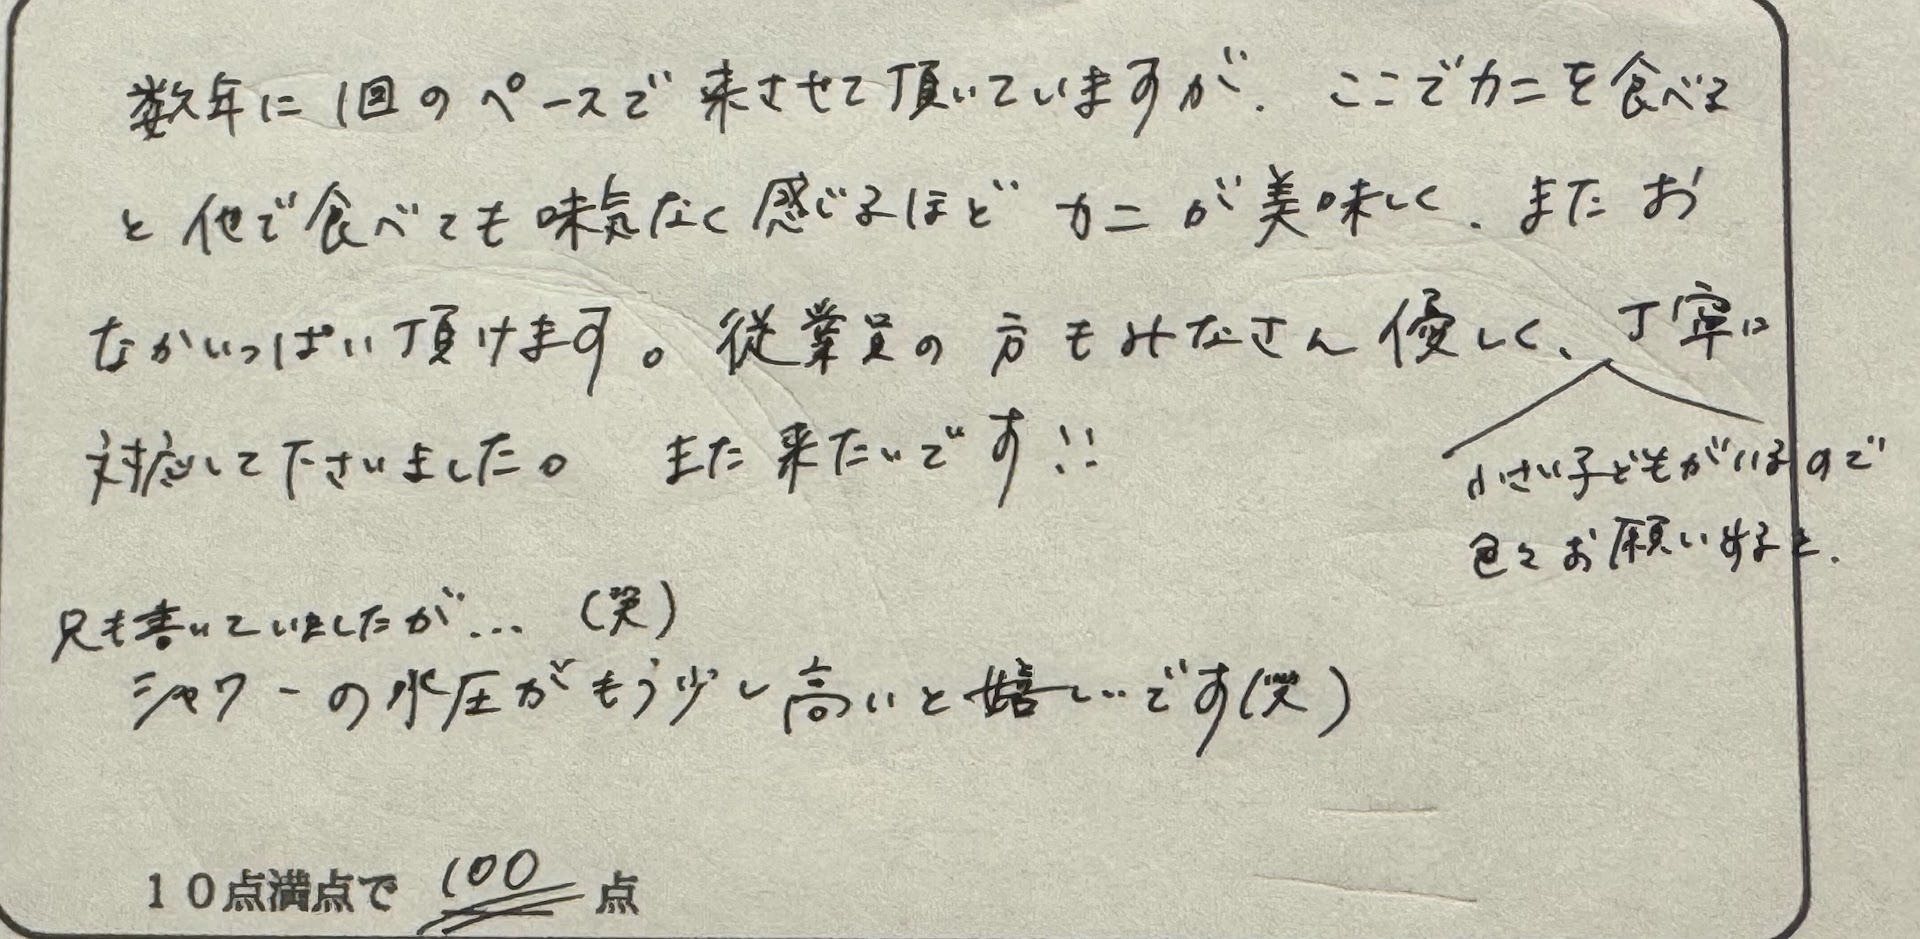 数年に1回のペースで来させて頂いていますが、ここでカニを食べる
と他で食べても味気なく感じるほどカニが美味しく、またお
なかいっぱい頂けます。従業員の方もみなさん優しく、丁寧に
対応して下さいました。また来たいです!!
小さい子どもがいるので
色々お願いすると、
兄も書いていましたが…(笑)
シャワーの水圧がもう少し高いと嬉しいです(笑)
10点満点で 100 点